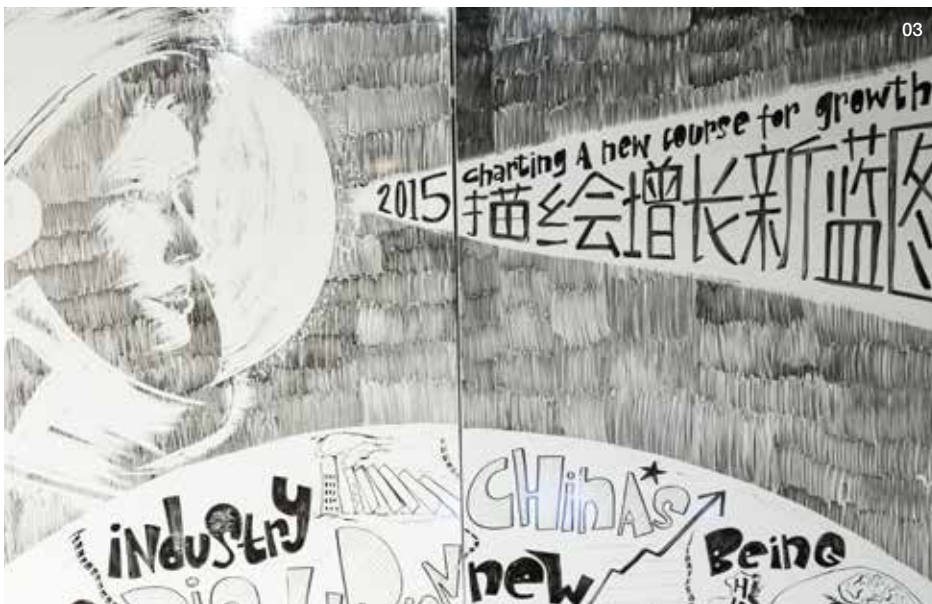 03
Charting A new course for growth
2015 描绘增长新蓝图
industry
CHinA's
new
Being